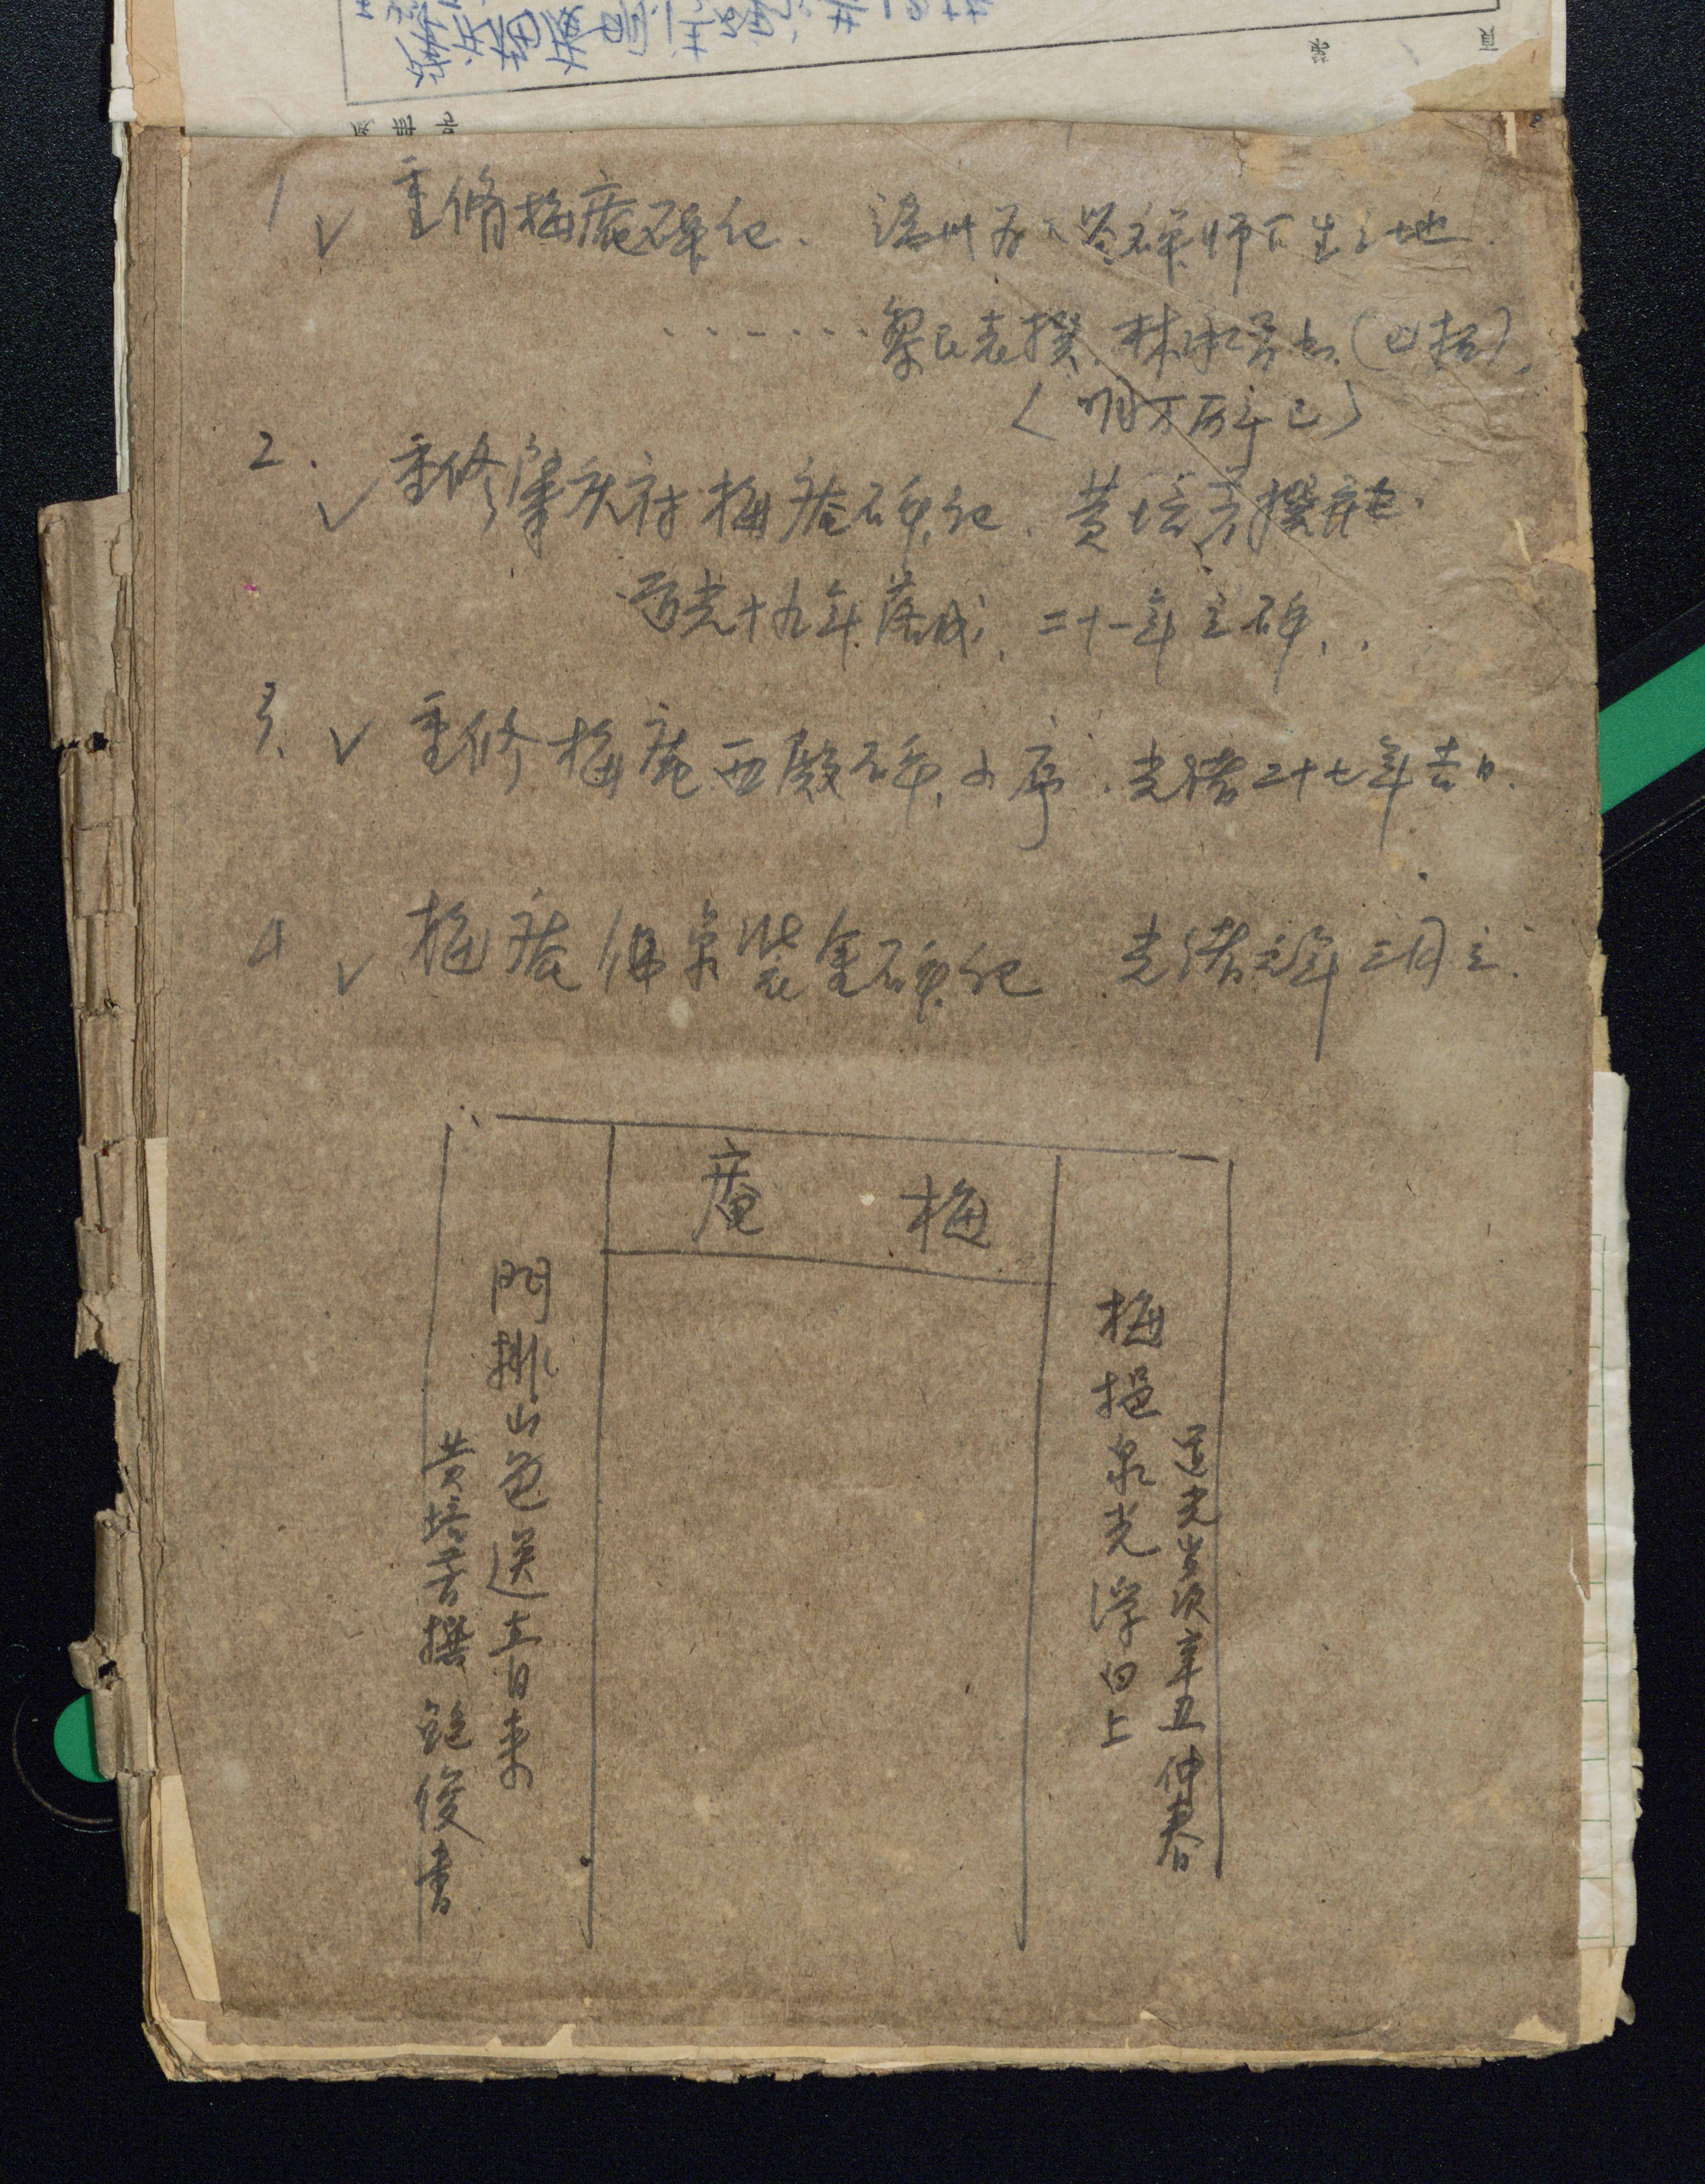 1 ✓ 重脩梅庵碑纪. 州为 禅师 生之地.
......黎民表撰. 林承芳书. (已拓).
〈明万历辛巳〉
2. ✓ 重修肇庆府梅庵碑纪. 黄培芳撰并书.
道光十九年落成, 二十一年立碑.
3. ✓ 重修梅庵西殿碑小序. 光绪二十七年吉日.
4 ✓ 梅庵佛象装金碑纪 光绪元年三月立.
梅庵
道光岁次辛丑仲春
梅挹泉光浮白上
門排山色送青来
黄培芳撰 鲍俊書